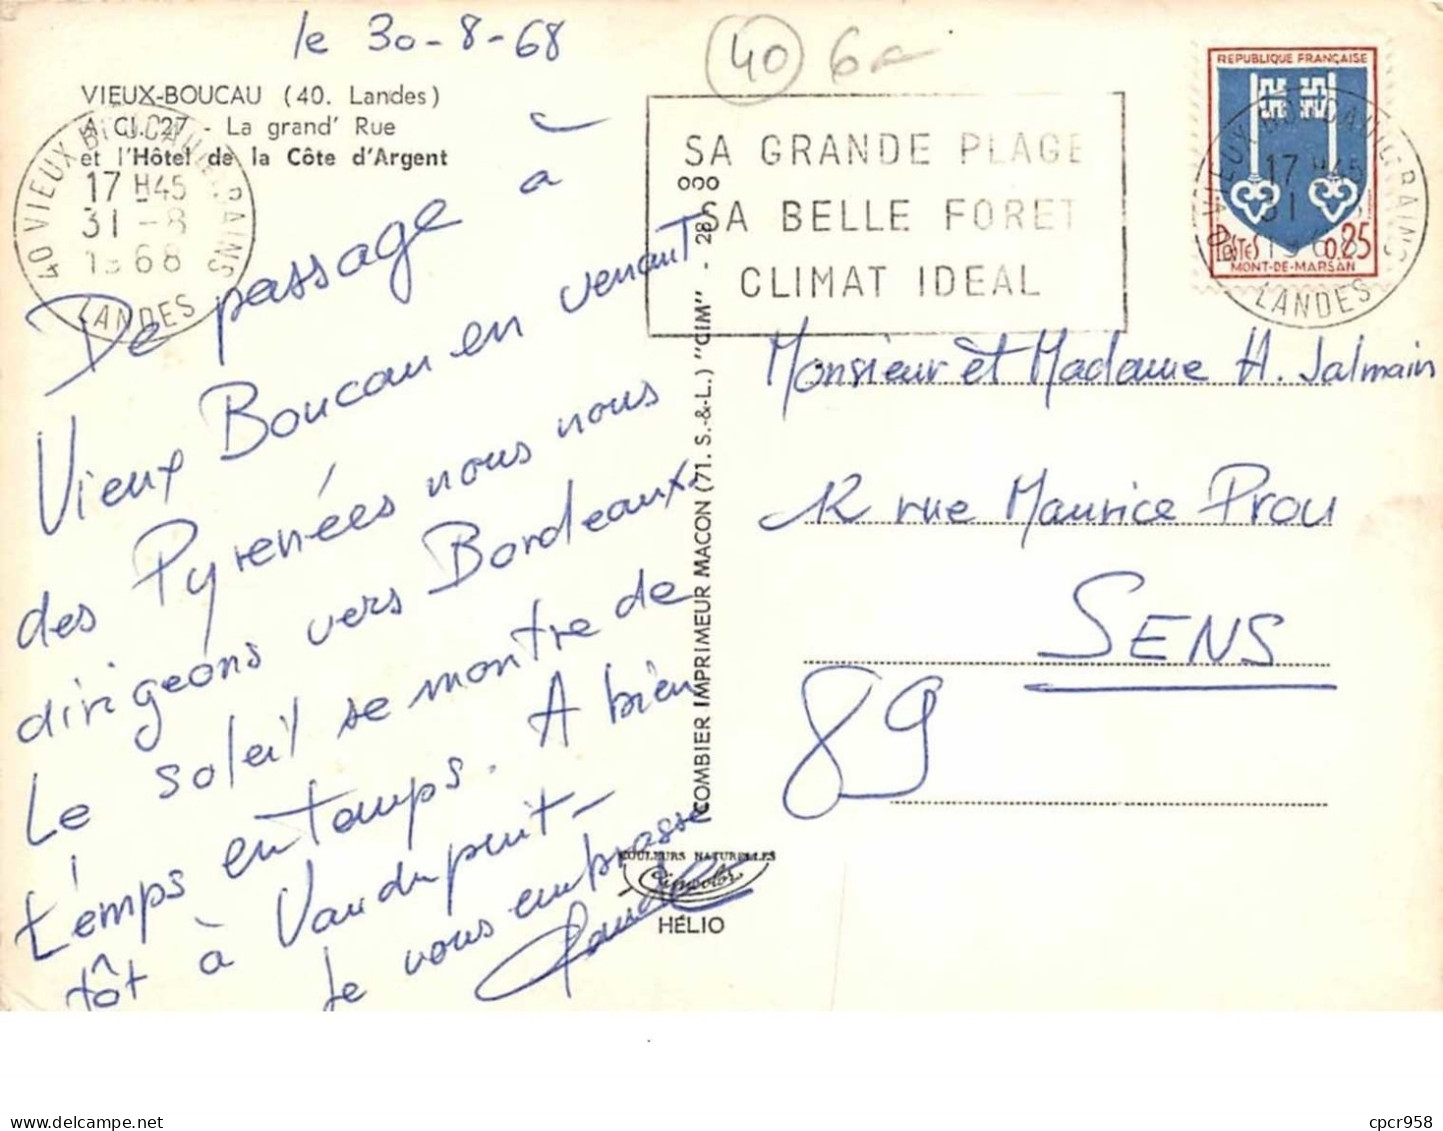 le 30-8-68
40 6
VIEUX-BOUCAU (40. Landes)
A CI. 27 - La grand' Rue
et l'Hôtel de la Côte d'Argent
40 VIEUX BOUCAU LES BAINS
17 H45
31 -8
1968
LANDES
SA GRANDE PLAGE
SA BELLE FORET
CLIMAT IDEAL
REPUBLIQUE FRANÇAISE
POSTES 0.25
MONT-DE-MARSAN
17 H45
31
1968
LANDES
De passage à
Vieux Boucau en venant
des Pyrenées nous nous
dirigeons vers Bordeaux.
Le soleil se montre de
temps en temps. A bien
tôt à
Je vous embrasse
COMBIER IMPRIMEUR MACON (71. S.-&-L.) "CIM" - 28
ooo
COULEURS NATURELLES
HÉLIO
Monsieur et Madame H. Jalmain
12 rue Maurice Prou
SENS
89
cpcr958